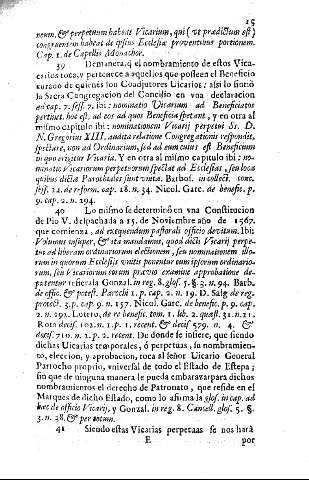 15
neum, & perpetuum habeat Vicarium, qui (ut prædictum est)
congruentem habeat de ipsius Ecclesiæ proventibus portionem,
Cap. 1. de Capellis Monachor.
39 Demanera, q̃ el nombramiento de estos Vica-
rios toca, y pertenece a aquellos que posseen el Beneficio
curado de quienes son Coadjutores Vicarios: assi lo sintiò
la Sacra Congregacion del Concilio en vna declaracion
ad cap. 7. sess. 7. ibi: nominatio Vicarium ad Beneficiatos
pertinet, hoc est, ad eos ad quos Beneficia spectant, y en otra al
mismo capitulo ibi: nominationem Vicarij perpetui Ss. D.
N. Gregorius XIII. audita relatione Congregationis respondit,
spectare, non ad Ordinarium, sed ad eum cuius est Beneficium
in quo erigitur Vicaria. Y en otra al mismo capitulo ibi: no-
minatio Vicariorum perpetuorum spectat ad Ecclesias, seu loca
quibus dictæ Parochiales sunt unitæ. Barbos. in collect. conc.
sess. 24. de reform. cap. 18. n. 34. Nicol. Garc. de benefic. p.
9. cap. 2. n. 294.
40 Lo mismo se determinò en vna Constitucion
de Pio V. despachada a 15. de Noviembre año de 1567.
que comienza, ad exequendum pastoralis officio devitum. Ibi
Volumus insuper, & ita mandamus, quod dicti Vicarij perpe-
tui ad liberam ordinariorum electionem, seu nominationem illo-
rum in quorum Ecclesijs vnitis ponuntur cum ipsorum ordinario-
rum, seu Vicariorum eorum prævio examine approbatione de-
putentur refierela Gonzal. in reg. 8. glos. 5. §. 3. n. 94. Barb.
de offic. & potest. Parochi 1. p. cap. 2. n. 19. D. Salg. de reg.
protect. 3. p. cap. 9. n. 157. Nicol. Garc. de benefic. p. 9. cap.
2. n. 291. Lotero, de re benefic. tom. 1. lib. 2. quæst. 31. n. 21.
Rota decis. 102. n. 1. p. 1. recent. & decis. 579. n. 4. &
decis. 710. n. 2. p. 2. recent. De donde se infiere, que siendo
dichas Vicarias temporales, ò perpetuas, su nombramien-
to, eleccion, y aprobacion, toca al señor Vicario General
Parrocho proprio, vniversal de todo el Estado de Estepa;
sin que de ninguna manera le pueda embarazar para dichos
nombramientos el derecho de Patronato, que reside en el
Marques de dicho Estado, como lo afirma la glos. in cap. ad
hæc de officio Vicarij, y Gonzal. in reg. 8. Cancell. glos. 5. §.
3. n. 28. & per totum.
41 Siendo estas Vicarias perpetuas se nos harà
E por